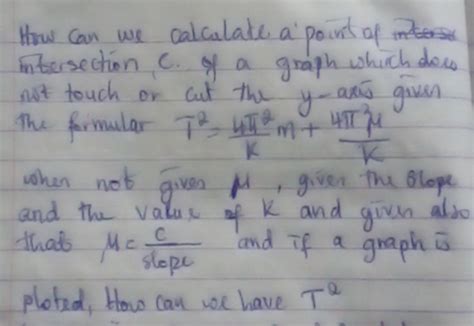 How can we calculate a point of inters
intersection, C. of a graph which does
not touch or cut the y-axis given
the formular T² = 4π²/K m + 4π²μ/K
when not given μ, given the slope
and the value of K and given also
thats μ = C/slope and if a graph is
ploted, How can we have T²